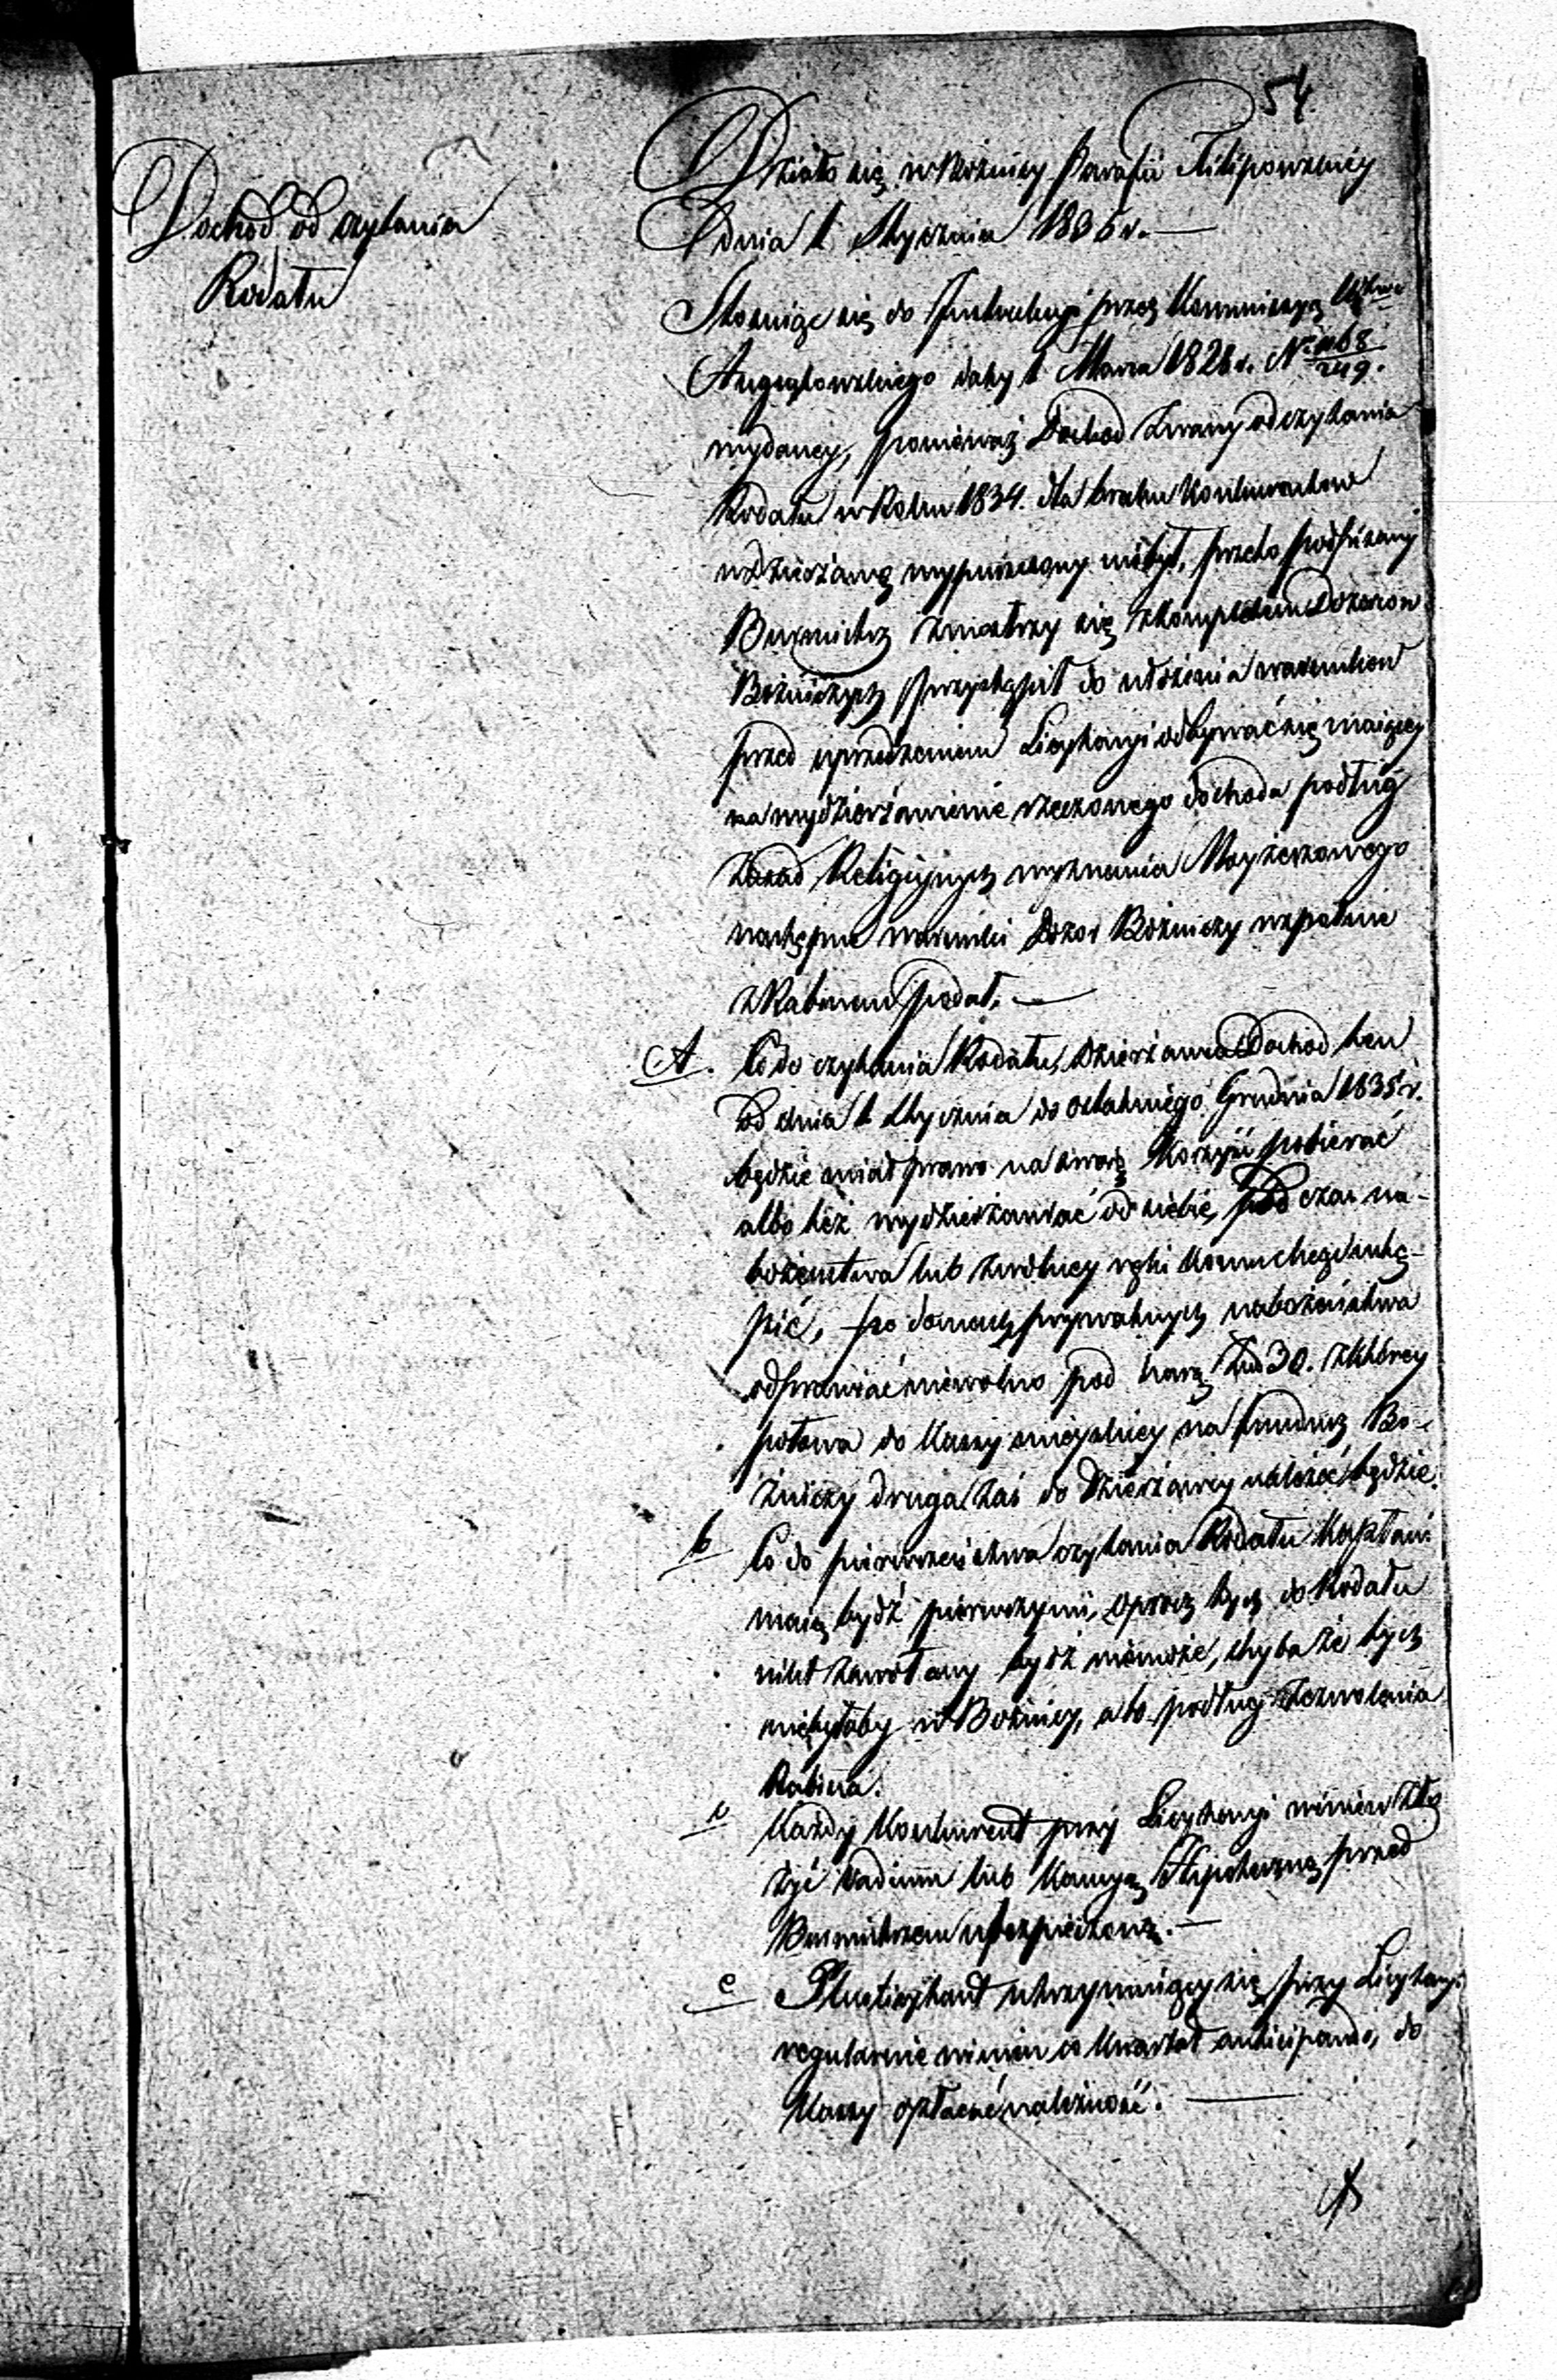 54
Dochod od czytania
Rodału
Działo się w Bożnicy Parafii Filipowskiey
dnia 1 Stycznia 1835 r.
Stosuiąc się do Instrukcyi przez Kommissyą Wdztwa
Augustowskiego daty 1 Marca 1828 r. N
wydaney, ponieważ Dochod zwany od czytania
Rodału w Roku 1834. dla braku Konkurentow
w dzierżawę wypuszczony niebył, przeto podpisany
Burmistrz zniosłszy się z kompletem Dozorow
Bożniczych przystąpił do ułożenia warunkow
przed uprzedzeniem Licytacyi odbywać się maiącey
na wydzierżawienie rzeczonego dochodu podług
Zasad Religiynych wyznania Moyżeszowego
następne warunki Dozor Bożniczy wspolnie
z Rabinem podał.
A. Co do czytania Rodału, Dzierżawca Dochod ten
od dnia 1 Stycznia do ostatniego Grudnia 1835 r.
będzie miał prawo na swoią Korzyść pobierać
albo też wydzierżawiać od siebie, pod czas na-
bożeństwa lub z wolney ręki komu chcąc ustą-
pić, po domach prywatnych nabożeństwa
odprawiać niewolno pod karą Złp 30. z ktorey
połowa do Kassy mieyskiey na fundusz Bo-
żniczy druga zaś do Dzierżawcy należeć będzie.
b Co do pierwszeństwa czytania Rodału Kapłani
maią bydź pierwszymi, oprocz tych do Rodału
nikt zawołany bydź niemoże, chyba że tych
niebyłoby w Bożnicy, a to podług zezwolenia
Rabina.
Każdy Konkurent przy Licytacyi winien zło
żyć Vadium lub Kaucyą Hypoteczną przed
Burmistrzem ubezpieczoną.
c Pluslicytant utrzymuiący się przy Licytacyi
regularnie winien co Kwartał anticipando, do
Kassy opłacać należność.